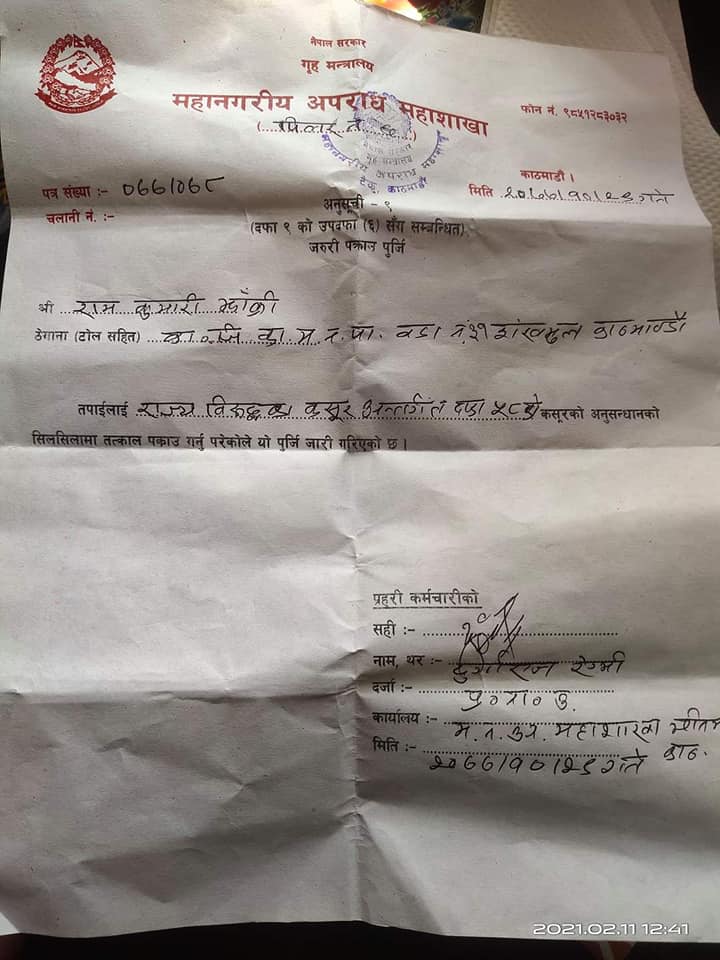 नेपाल सरकार
गृह मन्त्रालय
महानगरीय अपराध महाशाखा
फोन नं. ९८५१२८३०३२
नेपाल सरकार
गृह मन्त्रालय
महानगरीय अपराध महाशाखा
टेकु, काठमाडौं
काठमाडौं ।
पत्र संख्या :- ०७७।०७८
मिति २०७७।१०।२९ गते
चलानी नं. :-
अनुसूची - ९
(दफा ९ को उपदफा (६) सँग सम्बन्धित)
जरुरी पक्राउ पुर्जि
श्री राम कुमारी झाँक्री
ठेगाना (टोल सहित) का.जि. का.म.न.पा. वडा नं. ३१ शंखमुल काठमाण्डौ
तपाईलाई राज्य विरुद्धका कसूर अन्तर्गत दफा ५८ को कसूरको अनुसन्धानको
सिलसिलामा तत्काल पकाउ गर्नु परेकोले यो पुर्जि जारी गरिएको छ।
प्रहरी कर्मचारीको
सही :-
नाम, थर :- दुर्गाराज रेग्मी
दर्जा :- प्र०ना०उ.
कार्यालय :- म.न.अप. महाशाखा
मिति :- २०७७।१०।२९ गते काठ.
2021.02.11 12:41